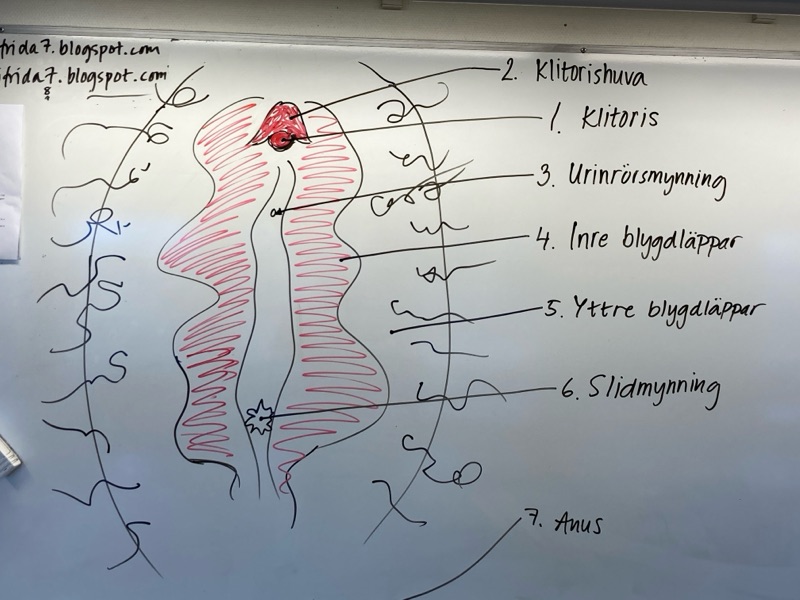 frida7.blogspot.com
frida7.blogspot.com
8
2. Klitorishuva
1. Klitoris
3. Urinrörsmynning
4. Inre blygdläppar
5. Yttre blygdläppar
6. Slidmynning
7. Anus